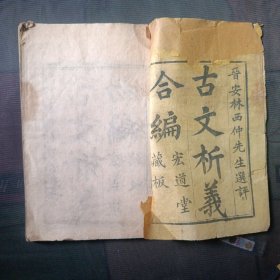 晉安林西仲先生選評
古文析義
合編
宏道堂
藏板